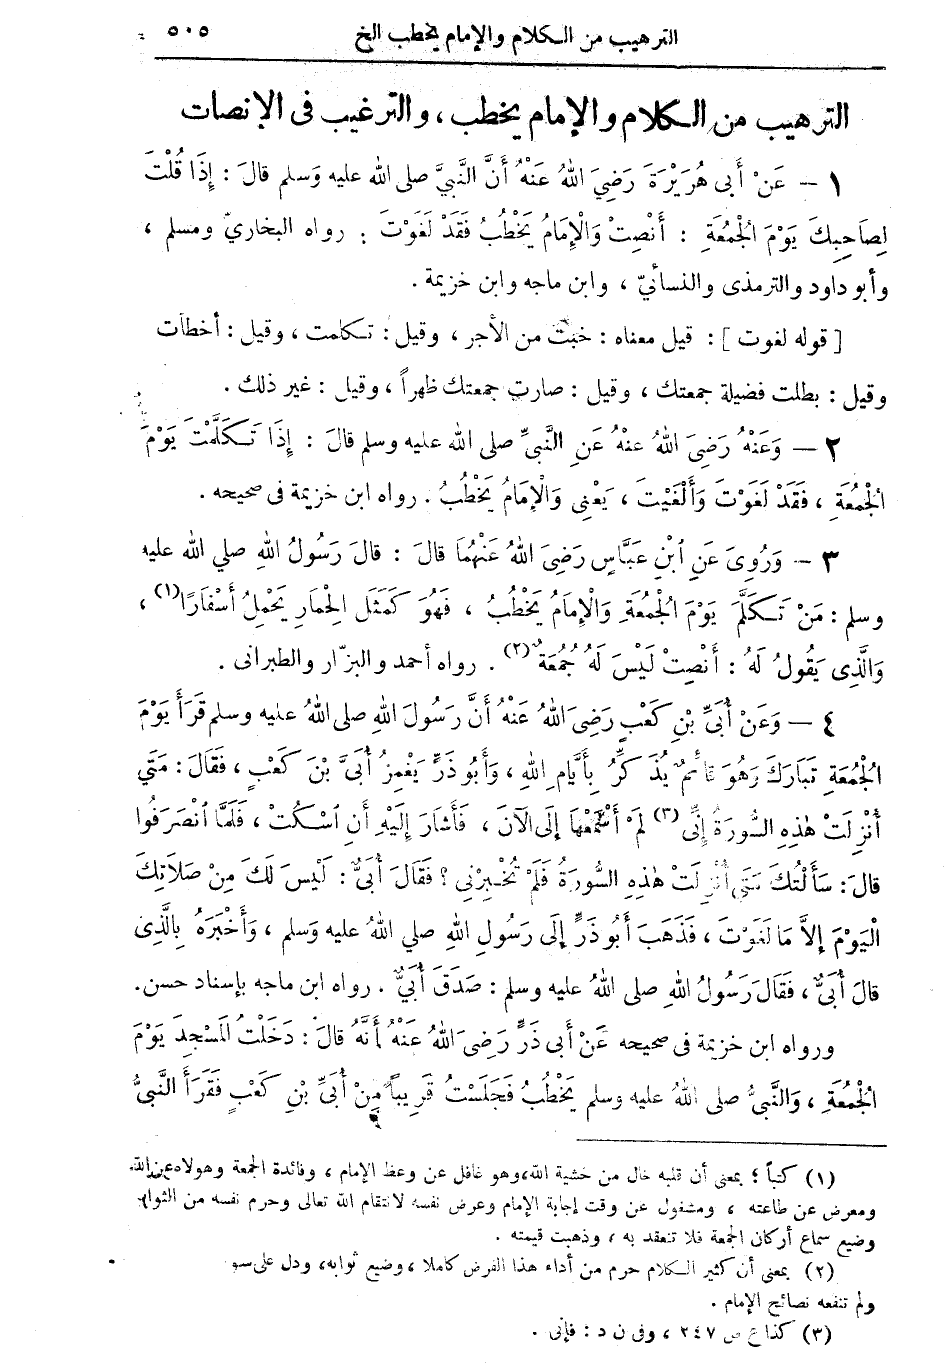 الترهيب من الكلام والإمام يخطب الخ ٥٠٥
الترهيب من الكلام والإمام يخطب، والترغيب فى الإنصات
١ — عَنْ أَبِى هُرَيْرَةَ رَضِيَ اللهُ عَنْهُ أَنَّ النَّبِيَّ صلى الله عليه وَسلم قالَ : إِذَا قُلْتَ
لِصَاحِبِكَ يَوْمَ الْجُمُعَةِ : أَنْصِتْ وَالْإِمَامُ يَخْطُبُ فَقَدْ لَغَوْتَ . رواه البخاريّ ومسلم ،
وأبو داود والترمذى والنسأئيّ ، وابن ماجه وابن خزيمة .
[ قوله لغوت ] : قيل معناه : خبْتَ من الأجر ، وقيل : تكلمت ، وقيل : أخطأت
وقيل : بطلت فضيلة جمعتك ، وقيل : صارت جمعتك ظهراً ، وقيل : غير ذلك .
٢ — وَعَنْهُ رَضِيَ اللهُ عنهُ عَنِ النَّبيِّ صلى الله عليه وسلم قالَ : إِذَا تَكَلَّمْتَ يَوْمَ
الْجُمُعَةِ ، فَقَدْ لَغَوْتَ وَأَلْغَيْتَ ، يَعْنِى وَالْإِمَامُ يَخْطُبُ . رواه ابن خزيمة فى صحيحه .
٣ — وَرُوِىَ عَنِ ابْنِ عَبَّاسٍ رَضِيَ اللهُ عَنْهُمَا قالَ : قالَ رَسُولُ اللهِ صلي الله عليه
وسلم : مَنْ تَكَلَّمَ يَوْمَ الْجُمُعَةِ وَالْإِمَامُ يَخْطُبُ ، فَهُوَ كَمَثَلِ الْحِمَارِ يَحْمِلُ أَسْفَارًا (١) ،
وَالَّذِى يَقُولُ لَهُ : أَنْصِتْ لَيْسَ لَهُ جُمُعَةٌ (٢) . رواه أحمد والبزّار والطبرانى .
٤ — وَعَنْ أُبَيِّ بْنِ كَعْبٍ رَضِيَ اللهُ عَنْهُ أَنَّ رَسُولَ اللهِ صلى اللهُ عليه وسلم قَرَأَ يَوْمَ
الْجُمُعَةِ تَبَارَكَ وَهُوَ قَائمٌ يُذَكِّرُ بِأَيَّامِ اللهِ ، وَأَبُو ذَرٍّ يَغْمِزُ أُبَيَّ بْنَ كَعْبٍ ، فَقَالَ : مَتَي
أُنْزِلَتْ هٰذِهِ السُّورَةُ إِنِّى (٣) لَمْ أَسْمَعْهَا إِلَى الآنَ ، فَأَشَارَ إِلَيْهِ أَنِ اسْكُتْ ، فَلَمَّا انْصَرَفُوا
قالَ : سَأَلْتُكَ مَتَى أُنْزِلَتْ هٰذِهِ السُّورَةُ فَلَمْ تُخْبِرْنِى ؟ فَقَالَ أُبَيٌّ : لَيْسَ لَكَ مِنْ صَلَاتِكَ
الْيَوْمَ إِلاَّ مَا لَغَوْتَ ، فَذَهَبَ أَبُو ذَرٍّ إِلَى رَسُولِ اللهِ صلي اللهُ عليه وَسلم ، وَأَخْبَرَهُ بِالَّذِى
قالَ أُبَيٌّ ، فَقَالَ رَسُولُ اللهِ صلى اللهُ عليه وسلم : صَدَقَ أُبَيٌّ . رواه ابن ماجه بإسناد حسن.
ورواه ابن خزيمة فى صحيحه عَنْ أَبِى ذَرٍّ رَضِىَ اللهُ عَنْهُ أَنَّهُ قالَ : دَخَلْتُ الْمَسْجِدَ يَوْمَ
الْجُمُعَةِ ، وَالنَّبِيُّ صلى اللهُ عليه وسلم يَخْطُبُ فَجَلَسْتُ قَرِيباً مِنْ أُبَيِّ بْنِ كَعْبٍ فَقَرَأَ النَّبِيُّ
(١) كتباً ؛ بمعنى أن قلبه خال من خشية الله، وهو غافل عن وعظ الإمام ، وفائدة الجمعة وهولاه عن الله
ومعرض عن طاعته ، ومشغول عن وقت إجابة الإمام وعرض نفسه لانتقام الله تعالى وحرم نفسه من الثواب
وضيع سماع أركان الجمعة فلا تنعقد به ، وذهبت قيمته .
(٢) بمعنى أن كثير الكلام حرم من أداء هذا الفرض كاملا ، وضيع ثوابه، ودل على سو
ولم تنفعه نصائح الإمام .
(٣) كذا ع ص ٢٤٧ ، وفى ن د : فإنى .